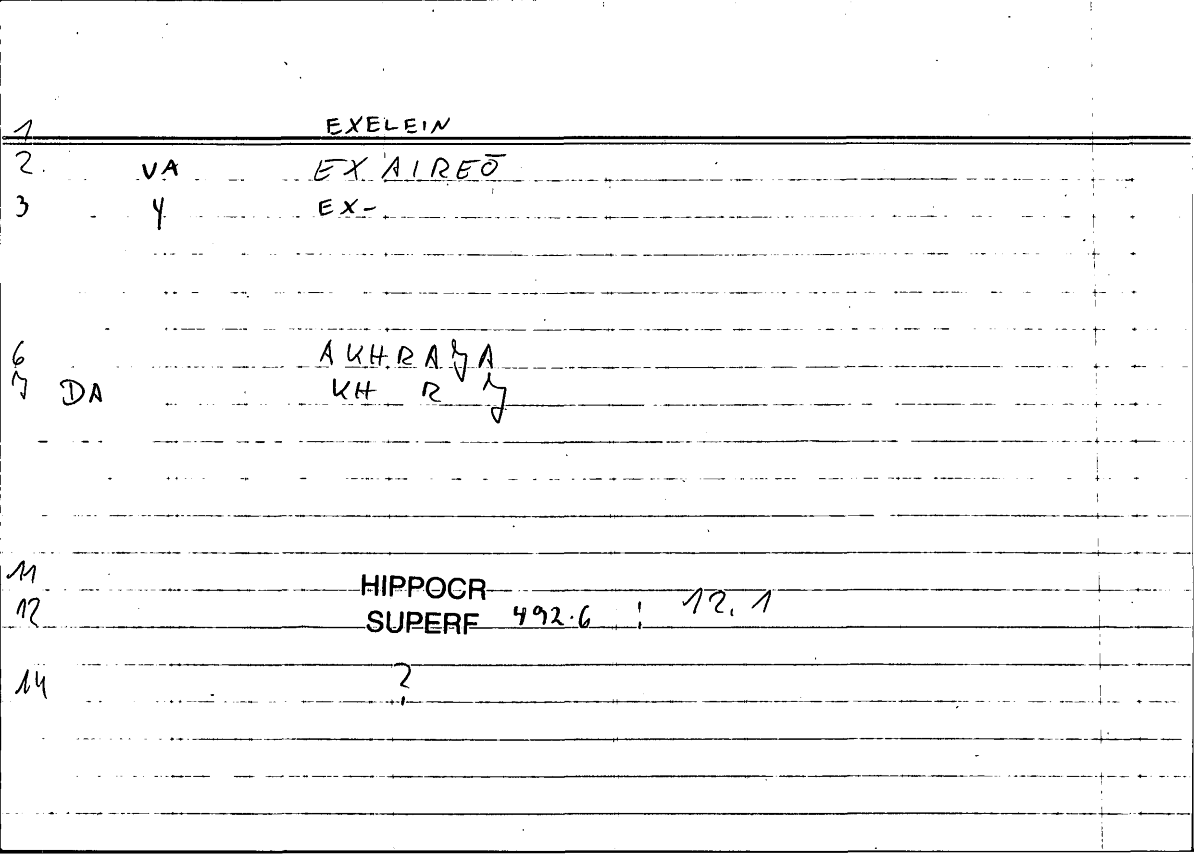 1 EXELEIN
2. VA EXAIREŌ
3 Y EX-
6 AKHRAJA
7 DA KH R J
11 HIPPOCR
12 SUPERF 492.6 ; 12.1
14 ?